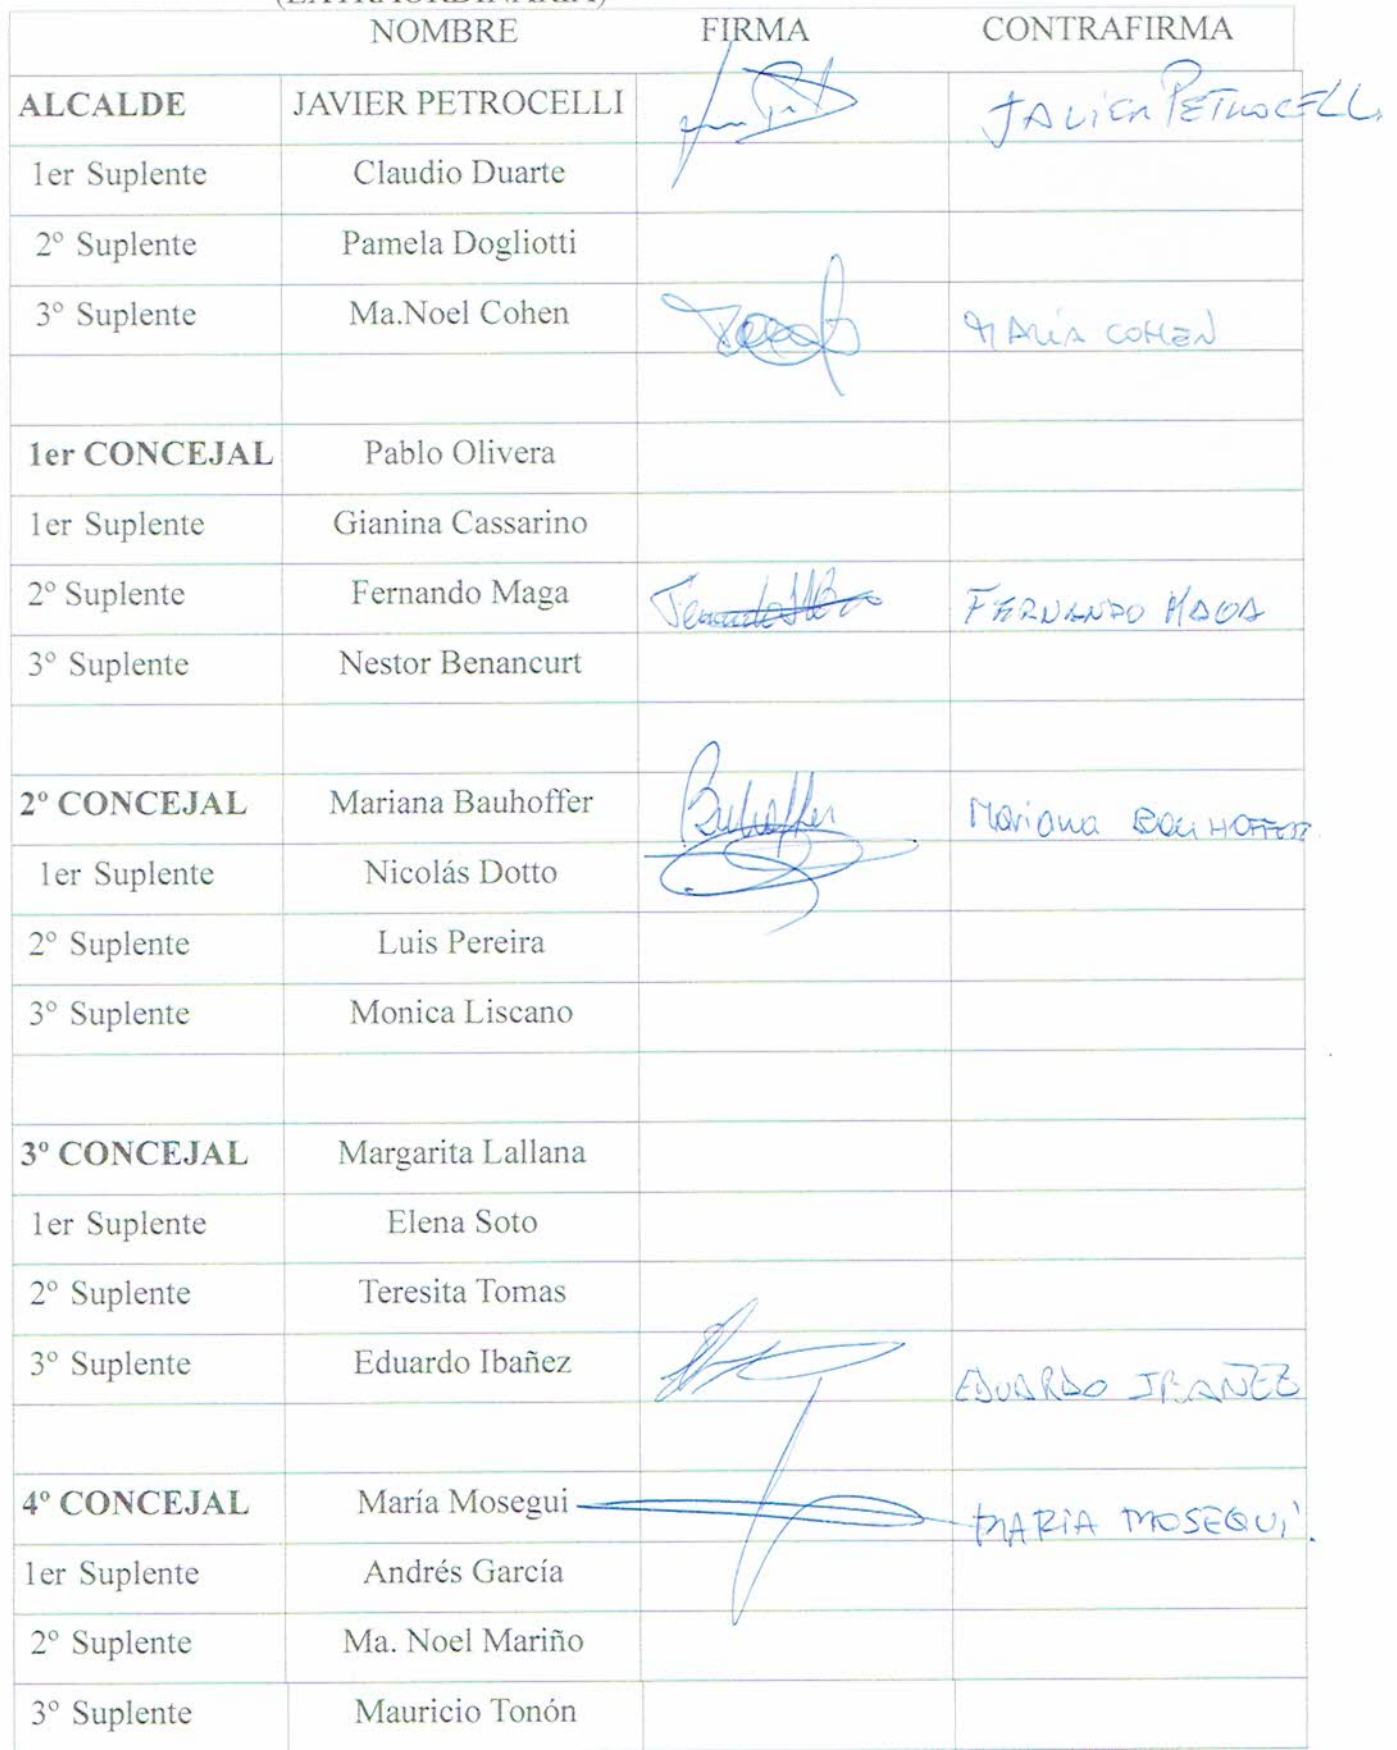 (EXTRAORDINARIA)
NOMBRE FIRMA CONTRAFIRMA
ALCALDE JAVIER PETROCELLI JAVIER PETROCELLI
1er Suplente Claudio Duarte
2º Suplente Pamela Dogliotti
3º Suplente Ma.Noel Cohen MARÍA COHEN
1er CONCEJAL Pablo Olivera
1er Suplente Gianina Cassarino
2º Suplente Fernando Maga FERNANDO MAGA
3º Suplente Nestor Benancurt
2º CONCEJAL Mariana Bauhoffer Bauhoffer Mariana BAUHOFFER
1er Suplente Nicolás Dotto
2º Suplente Luis Pereira
3º Suplente Monica Liscano
3º CONCEJAL Margarita Lallana
1er Suplente Elena Soto
2º Suplente Teresita Tomas
3º Suplente Eduardo Ibañez EDUARDO IBAÑEZ
4º CONCEJAL María Mosegui MARÍA MOSEGUI.
1er Suplente Andrés García
2º Suplente Ma. Noel Mariño
3º Suplente Mauricio Tonón